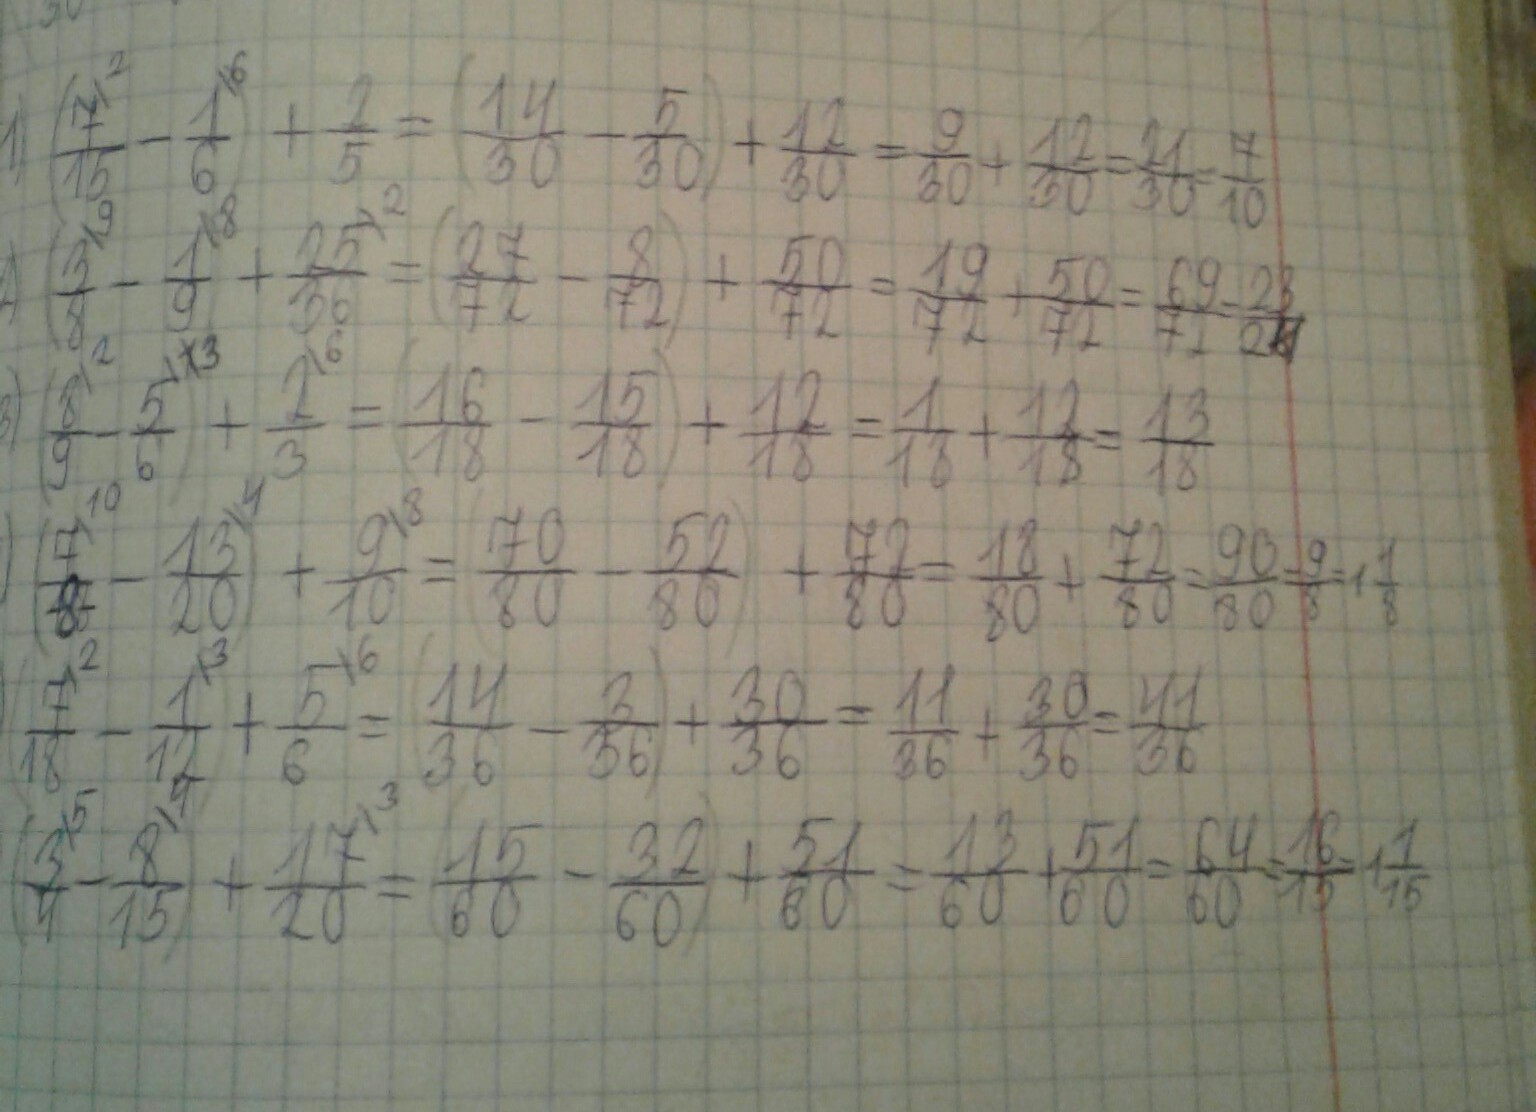 1) (7/15\2 - 1/6\6) + 2/5 = (14/30 - 5/30) + 12/30 = 9/30 + 12/30 = 21/30 = 7/10
(3/8\9 - 1/9\8) + 25/36\2 = (27/72 - 8/72) + 50/72 = 19/72 + 50/72 = 69/72 = 23/24
3) (8/9\2 - 5/6\3) + 2/3\6 = (16/18 - 15/18) + 12/18 = 1/18 + 12/18 = 13/18
(7/8\10 - 13/20\4) + 9/10\8 = (70/80 - 52/80) + 72/80 = 18/80 + 72/80 = 90/80 = 9/8 = 1 1/8
(7/18\2 - 1/12\3) + 5/6\6 = (14/36 - 3/36) + 30/36 = 11/36 + 30/36 = 41/36
(3/4\5 - 8/15\4) + 17/20\3 = (15/60 - 32/60) + 51/60 = 13/60 + 51/60 = 64/60 = 16/15 = 1 1/15